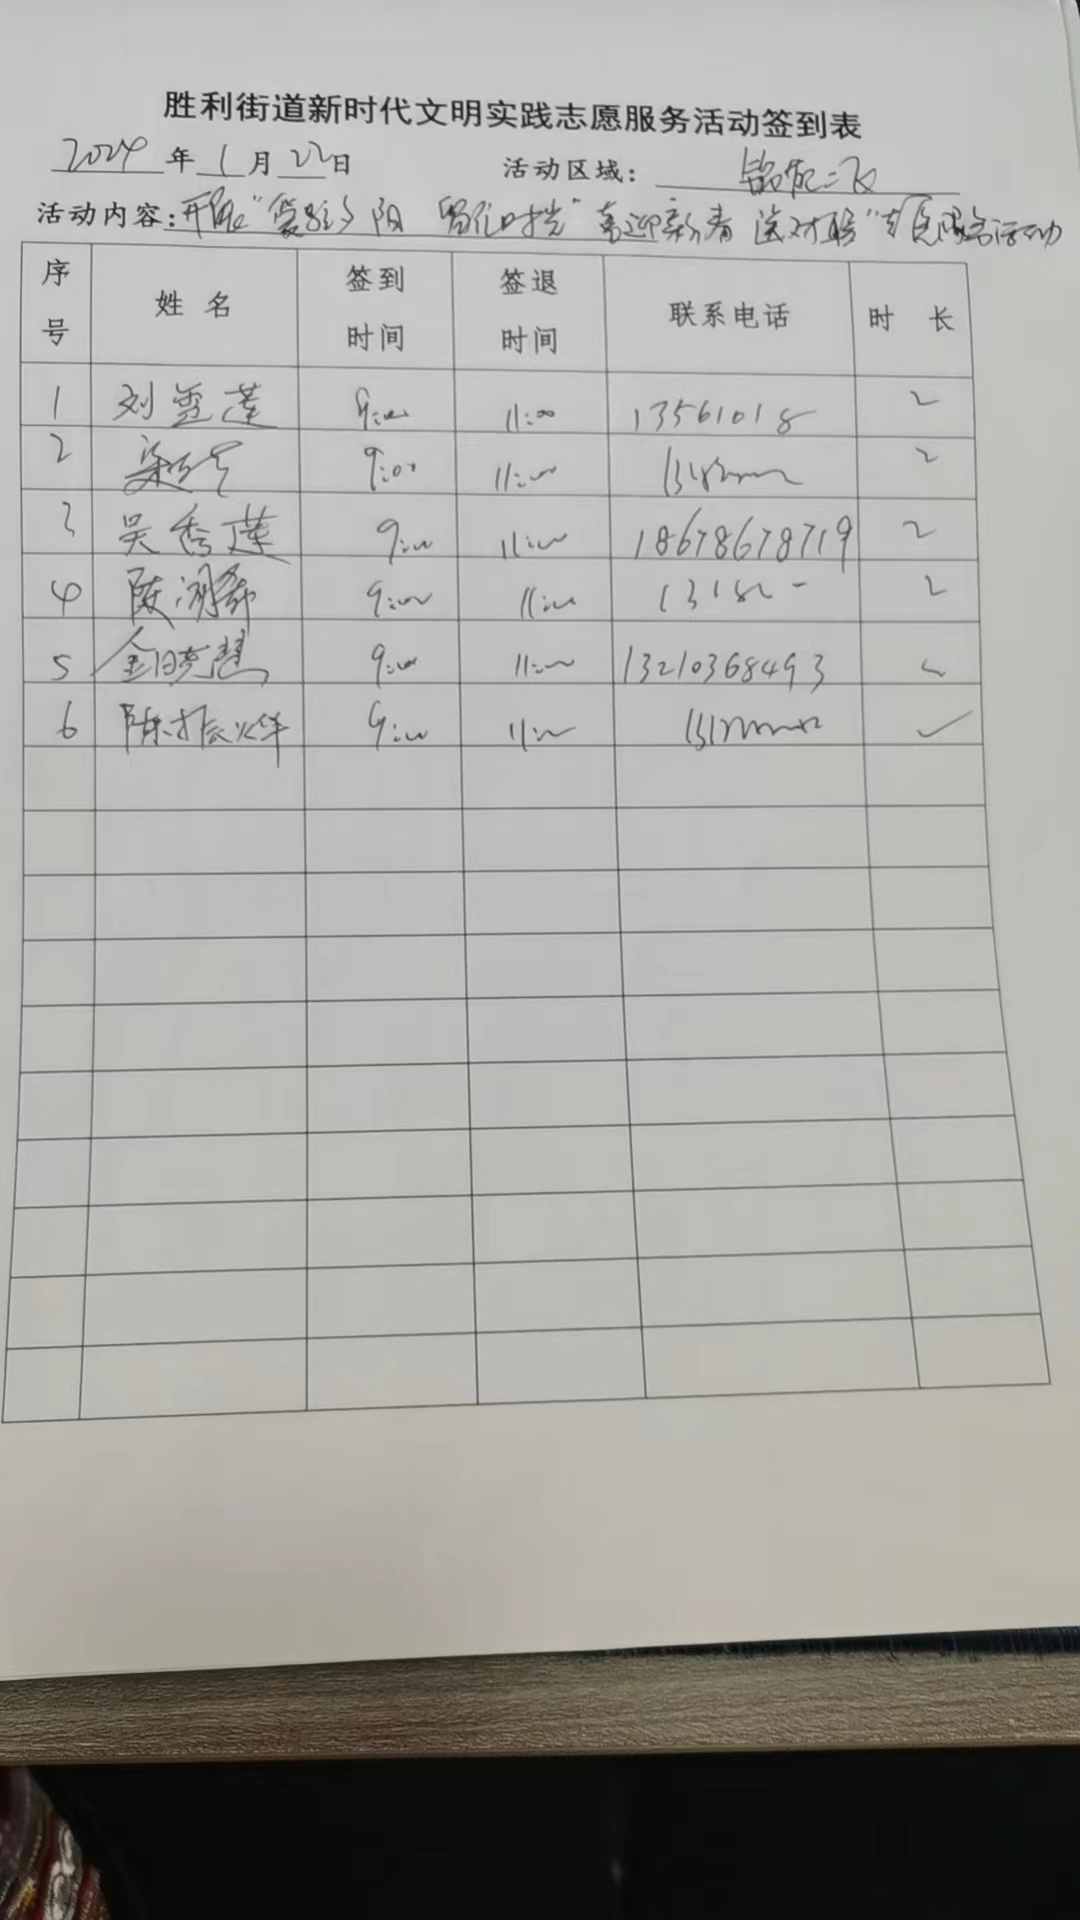 胜利街道新时代文明实践志愿服务活动签到表
2024年1月22日 活动区域：
活动内容：开展“爱 夕阳 时光”喜迎新春 送对联“志愿服务活动
序号 姓名 签到时间 签退时间 联系电话 时长
1 刘 莲 9:00 11:00 13561018 2
2 9:00 11:00 2
3 吴秀莲 9:00 11:00 18678678719 2
4 9:00 11:00 2
5 金晓慧 9:00 11:00 13210368493
6 陈振华 9:00 11:00